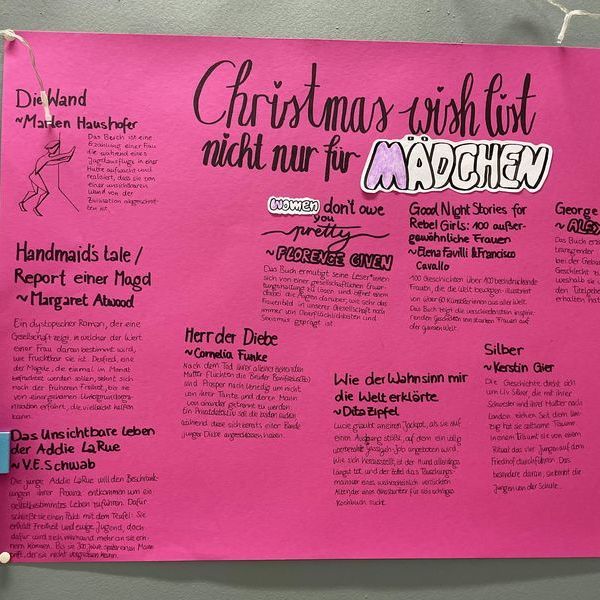 Christmas wish list
nicht nur für MÄDCHEN
Die Wand
~Marlen Haushofer
Das Buch ist eine
Erzählung einer Frau
die während eines
Jagdausflugs in einer
Hütte aufwacht und
realisiert, dass sie von
einer unsichtbaren
Wand von der
Zivilisation abgeschnit-
ten ist.
Handmaid's tale/
Report einer Magd
~Margaret Atwood
Ein dystopischer Roman, der eine
Gesellschaft zeigt, in welcher der Wert
einer Frau daran bestimmt wird,
wie fruchtbar sie ist. Desfred, eine
der Mägde, die einmal im Monat
befruchtet werden sollen, sehnt sich
nach der früheren Freiheit, bis sie
von einer geheimen Untergrundorga-
nisation erfährt, die vielleicht helfen
kann.
Das Unsichtbare Leben
der Addie LaRue
~V.E. Schwab
Die junge Addie LaRue will den Beschränk-
ungen ihrer Provinz entkommen um ein
selbstbestimmtes Leben zu führen. Dafür
schließt sie einen Pakt mit dem Teufel. Sie
erhält Freiheit und ewige Jugend, doch
dafür wird sich niemand mehr an sie erin-
nern können. Bis sie 300 Jahre später einen Mann
trifft, der sie nicht vergessen kann.
women don't owe
you
pretty
~FLORENCE GIVEN
Das Buch ermutigt seine Leser*innen
sich von einer gesellschaftlichen Erwar-
tungshaltung zu lösen und öffnet einem
dabei die Augen darüber, wie sehr das
Frauenbild in unserer Gesellschaft noch
immer von Oberflächlichkeiten und
Sexismus geprägt ist.
Herr der Diebe
~Cornelia Funke
Nach dem Tod ihrer alleinerziehenden
Mutter flüchten die Brüder Bonifazius(Bo)
und Prosper nach Venedig um nicht
von ihrer Tante und deren Mann
von einander getrennt zu werden
Ein Privatdetektiv soll die beiden finden
während diese sich bereits einer Bande
junger Diebe angeschlossen haben.
Good Night Stories for
Rebel Girls: 100 außer-
gewöhnliche Frauen
~Elena Favilli & Francisco
Cavallo
100 Geschichten über 100 beeindruckende
Frauen, die die Welt bewegen. Illustriert
von über 60 Künstlerinnen aus aller Welt.
Das Buch zeigt die verschiedensten inspirie-
renden Geschichten von starken Frauen auf
der ganzen Welt.
Wie der Wahnsinn mir
die Welt erklärte
~Dita Zipfel
Lucie glaubt an einen Jackpot, als sie auf
einen Aushang stößt, auf dem ein völlig
überbezahlter Gassigeh-Job angeboten wird.
Wie sich herausstellt, ist der Hund allerdings
längst tot, und der Zettel das Täuschungs-
manöver eines wahrscheinlich verrückten
Alten, der einen Ghostwriter für sein schräges
Kochbuch sucht.
Silber
~Kerstin Gier
Die Geschichte dreht sich
um Liv Silber, die mit ihrer
Schwester und ihrer Mutter nach
London ziehen. Seit dem Um-
zug hat sie seltsame Träume.
In einem Träumt sie von einem
Ritual das vier Jungen auf dem
Friedhof durchführen. Das
besondere daran, sie kennt die
Jungen von der Schule.
George
~ALEX
Das Buch erzä
transgender
bei der Gebu
Geschlecht z
weshalb sie
den Titelgebe
erhalten hat